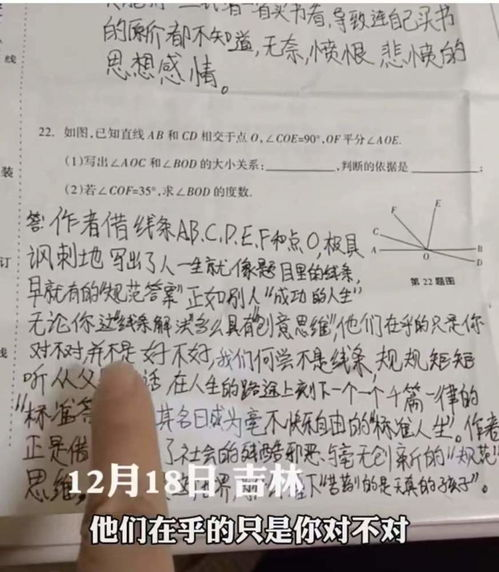 一者买书者,导致连自己买书
的原价都不知道,无奈,愤恨,悲愤的
思想感情。
线
22. 如图,已知直线 AB 和 CD 相交于点 O,∠COE=90°,OF 平分∠AOE.
(1)写出∠AOC 和∠BOD 的大小关系:________,判断的依据是________;
装
(2)若∠COF=35°,求∠BOD 的度数.
答:作者借线条AB.C.D.E.F和点O,极具
F E C A O B D
讽刺地写出了人一生就像题目里的线条,
订
第 22 题图
早就有的"规范答案"正如别人"成功的人生"
无论你这"线条解法"多么具有"创意思维",他们在乎的只是你
线
对不对,并不是好不好,我们何尝不是线条,规规矩矩
听从父 话,在人生的路途上刻下一个个千篇一律的
"标准答 其名曰成为毫不快乐自由的"标准人生"。作者
正是借 了社会的残酷邪恶,与毫无创新的"规范"
思维 下"苦药"的是天真的孩子"。
12月18日 吉林
他们在乎的只是你对不对